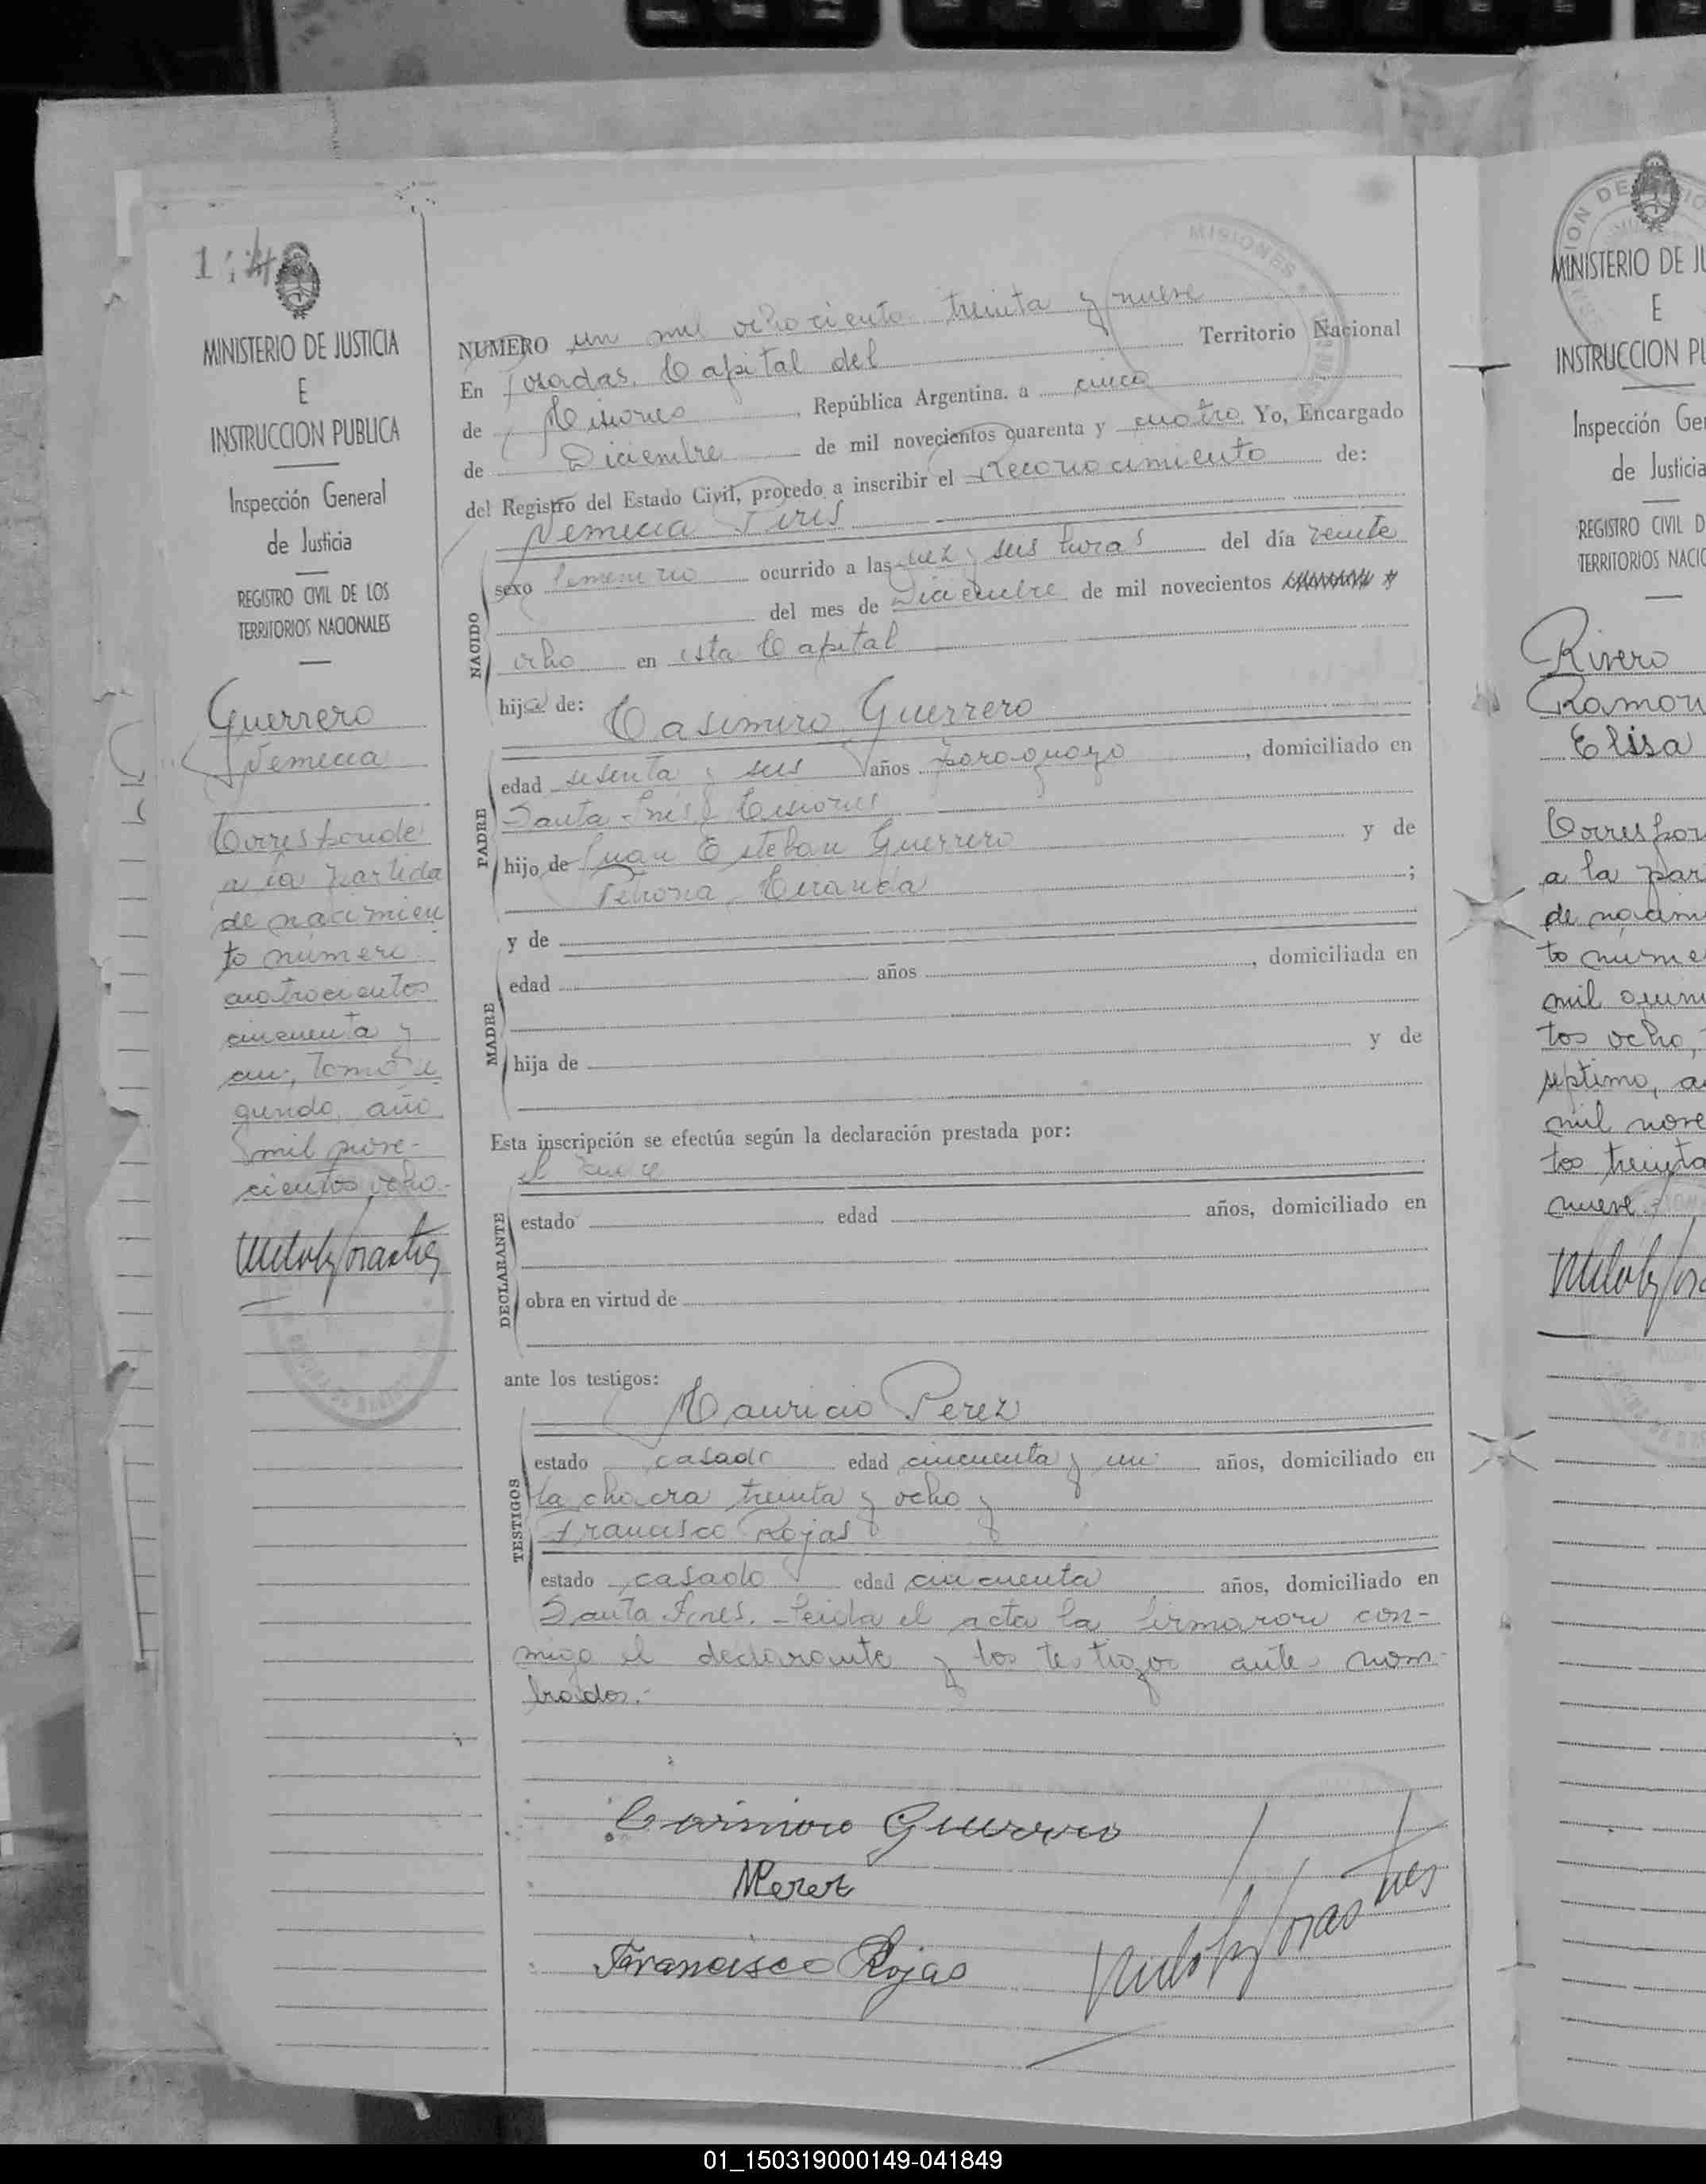 MINISTERIO DE JUSTICIA
E
INSTRUCCION PUBLICA
Inspección General
de Justicia
REGISTRO CIVIL DE LOS
TERRITORIOS NACIONALES
Guerrero
Nemecia
Corresponde
a la partida
de nacimien
to número
cuatrocientos
cincuenta y
un, tomo se
gundo, año
mil nove-
cientos ocho.-
MISIONES
NUMERO un mil ochociento treinta y nueve
En Posadas, Capital del Territorio Nacional
de Misiones, República Argentina, a cinco
de Diciembre de mil novecientos quarenta y cuatro Yo, Encargado
del Registro del Estado Civil, procedo a inscribir el reconocimiento de:
Nemecia Piris
NACIDO
sexo femenino ocurrido a las diez y seis horas del día veinte
del mes de Diciembre de mil novecientos
ocho en esta Capital
hija de: Casimiro Guerrero
PADRE
edad sesenta y seis años paraguayo, domiciliado en
Santa Inés, Misiones
hijo de Juan Esteban Guerrero y de
Petrona Miranda ;
y de
MADRE
edad años , domiciliada en
hija de y de
Esta inscripción se efectúa según la declaración prestada por:
el
DECLARANTE
estado edad años, domiciliado en
obra en virtud de
ante los testigos:
Mauricio Perez
TESTIGOS
estado casado edad cincuenta y un años, domiciliado en
la chacra treinta y ocho y
Francisco Rojas
estado casado edad cincuenta años, domiciliado en
Santa Ines. Leida el acta la firmaron con-
migo el declarante y los testigos ante nom-
brados.-
Casimiro Guerrero
MPerez
Francisco Rojas
MINISTERIO DE JU
E
INSTRUCCION PU
Inspección Ge
de Justicia
REGISTRO CIVIL D
TERRITORIOS NACIO
Rivero
Ramon
Elisa
Correspon
a la par
de nacim
to nume
mil quin
tos ocho,
septimo, a
mil nove
tos treinta
nueve
01_150319000149-041849